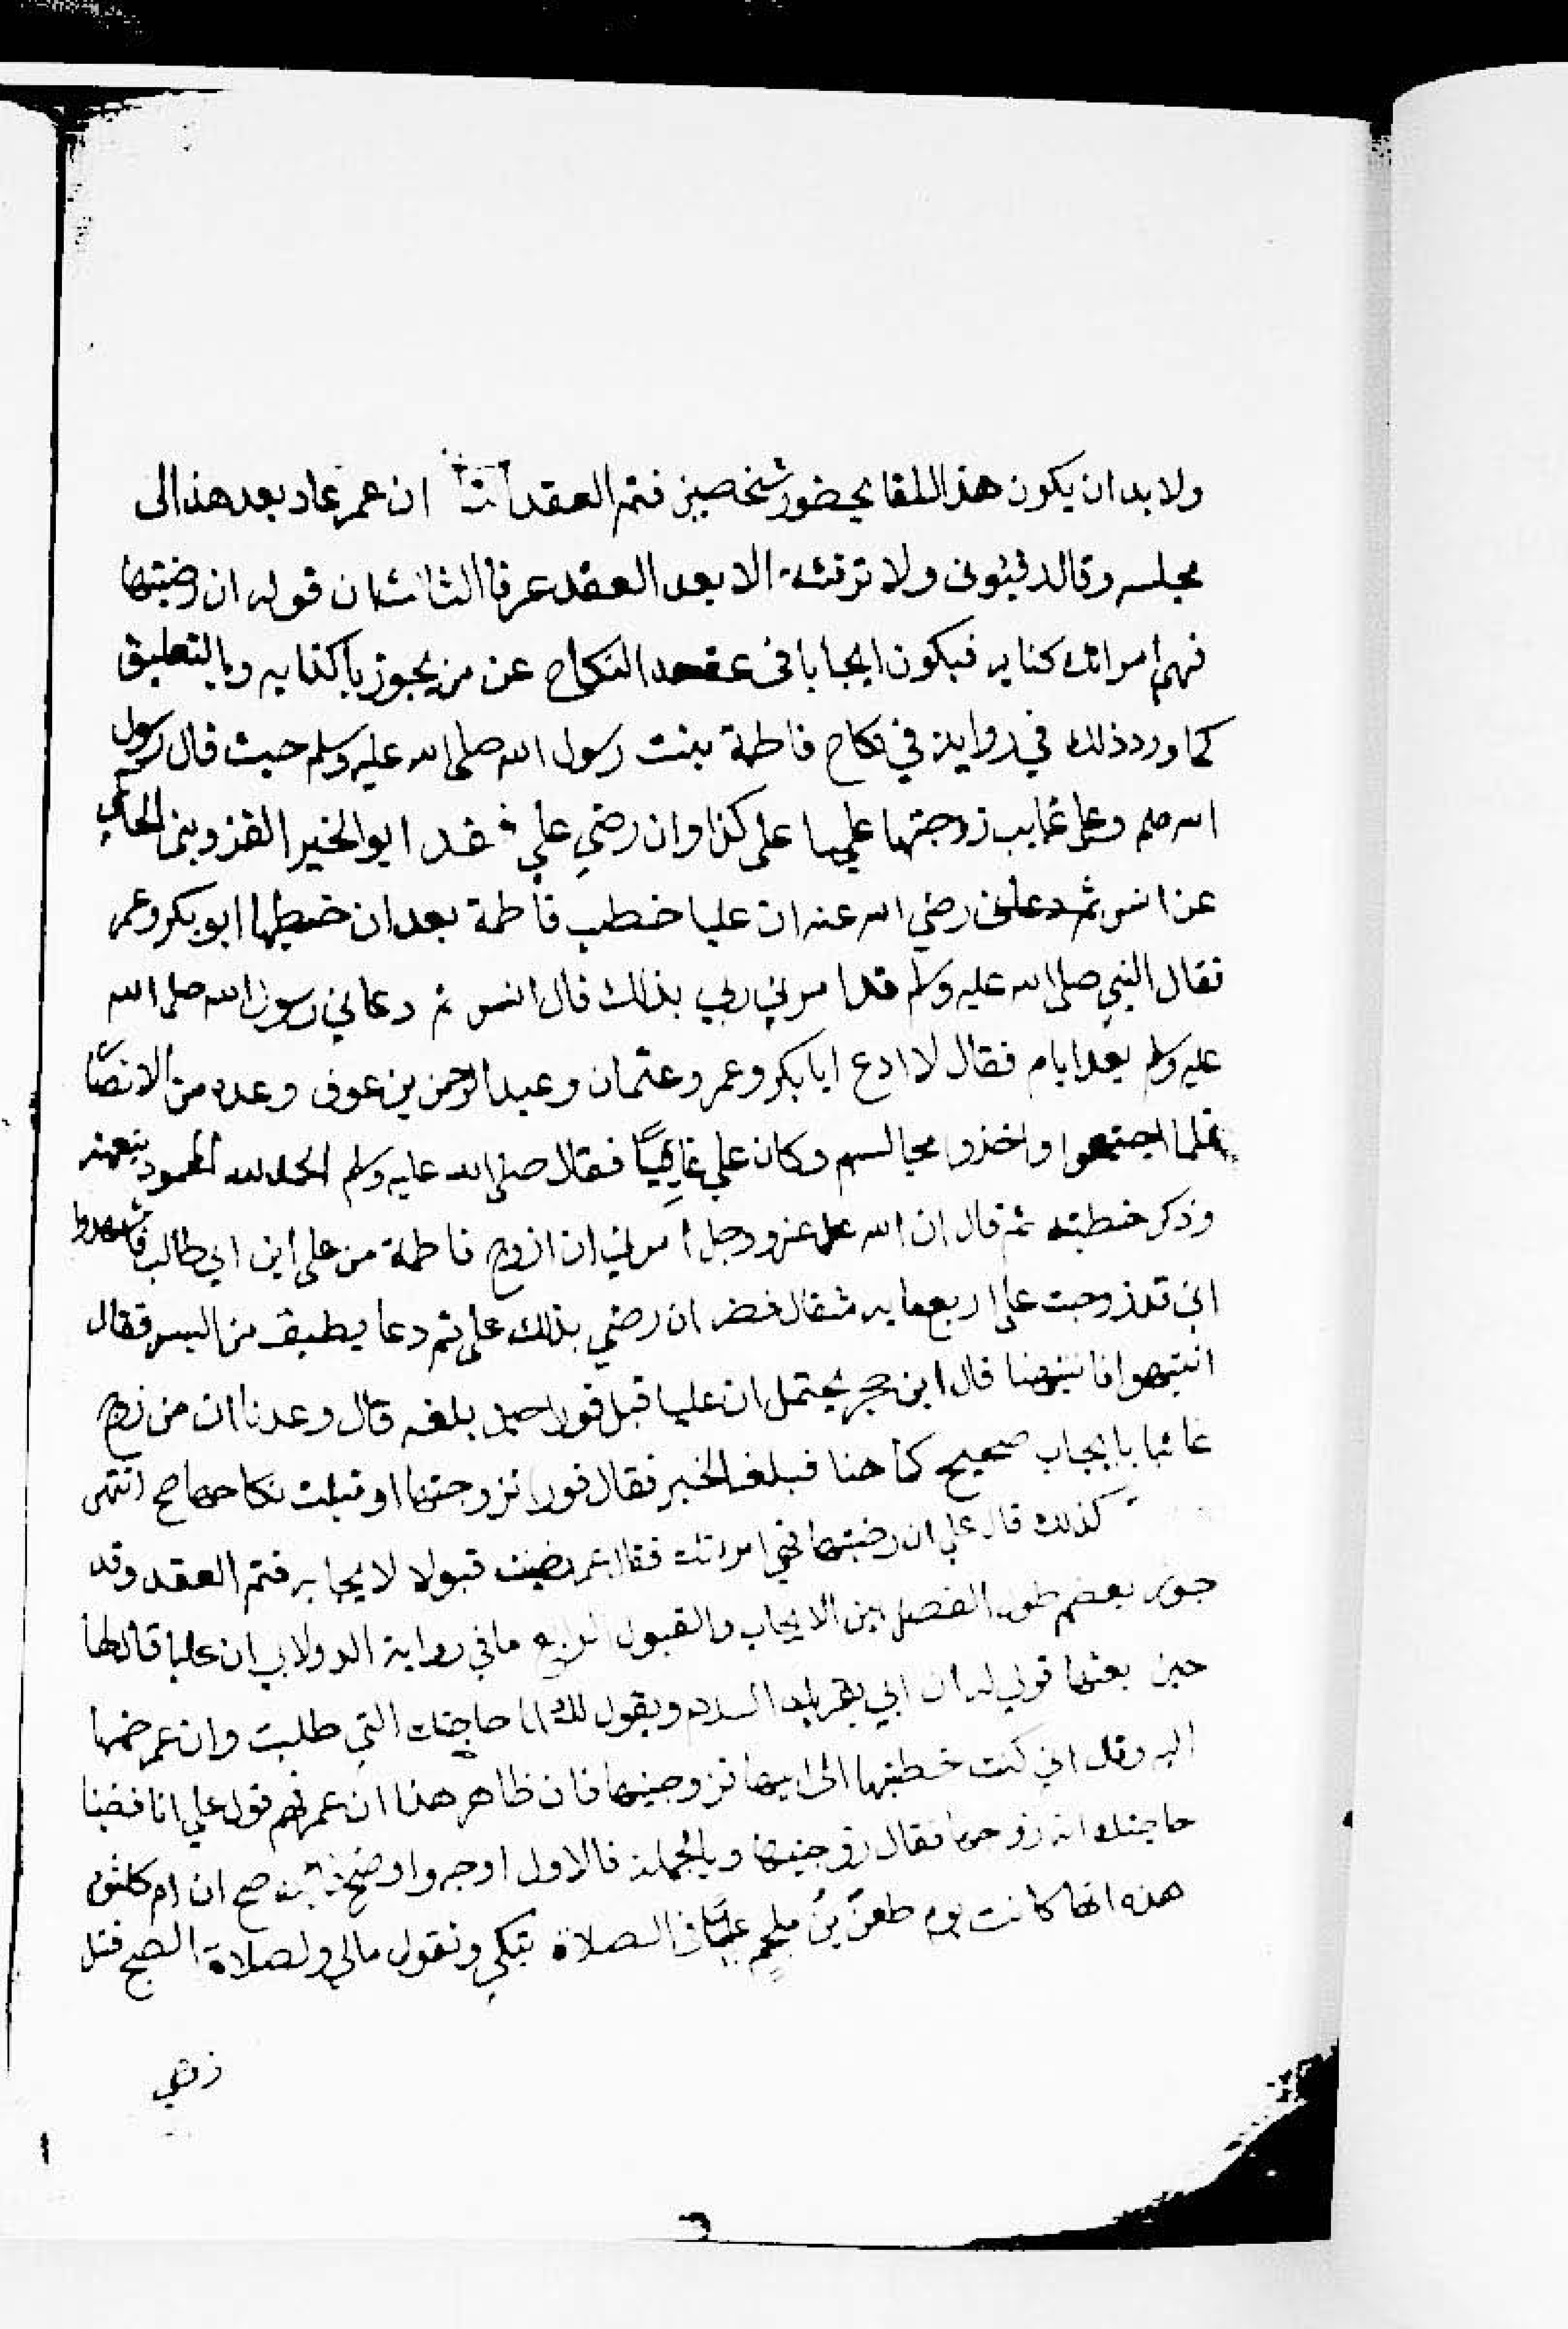 ولا بد ان يكون هذا اللقا بحضور شخصين فتم العقد ان عمر عاد بعد هذا الى
مجلسه وقال رفئونى ولا ترفئه الا بعد العقد عرفا الثالث ان قوله ان رضيتها
فهى امراتك كنايه فيكون ايجابا فى عقد النكاح عن من يجوز بالكنايه وبالتعليق
كما ورد ذلك في رواية في نكاح فاطمة بنت رسول الله صلى الله عليه وسلم حيث قال رسول
الله صلم وعلى غايب زوجتها عليا على كذا وان رضي علي فقد ابو الخير القزويني الحاكمي
عن انس رضي الله عنه ان عليا خطب فاطمة بعد ان خطبها ابو بكر وعمر
فقال النبي صلى الله عليه وسلم قد امرني ربي بذلك قال انس ثم دعاني رسول الله صلى الله
عليه وسلم بعد ايام فقال لا ادع ابا بكر وعمر وعثمان وعبد الرحمن بن عوف وعده من الانصار
فلما اجتمعوا واخذوا مجالسهم وكان علي غايبًا فقال صلى الله عليه وسلم الحمد لله المحمود بنعمته
وذكر خطبته ثم قال ان الله عز وجل امرني ان ازوج فاطمة من على ابن ابي طالب فاشهدوا
اني قد زوجت على اربعمايه مثقال فضه ان رضي بذلك على ثم دعا بطبق من البسر فقال
انتهبوا فانتهبنا قال ابن حجر يحتمل ان عليا قبل فورا حين بلغه قال وعدنا ان من زوج
غائبا بايجاب صحيح كما هنا فبلغه الخبر فقال فورا تزوجتها او قبلت نكاحها صح انتهى
كذلك قال علي ان رضيتها فهي امراتك فقال عمر رضيت قبولا لايجابه فتم العقد وقد
جوز بعضهم طول الفصل بين الايجاب والقبول الرابع ما في رواية الدولابي ان عليا قال لها
حين بعثها قولي له ان ابي يقريك السلام ويقول لك انا حاجتك التي طلبت وان عمر ضمها
اليه وقال اني كنت خطبتها الى ابيها فزوجنيها فان ظاهر هذا ان عمر فهم قول علي انا قضينا
حاجتك انه زوجها فقال زوجنيها وبالجملة فالاول اوجه واوضح صح ان ام كلثوم
هذه انها كانت يوم طعن بن ملجم عليًا في الصلاة تبكي وتقول مالي ولصلاة الصبح قتل
زوجي